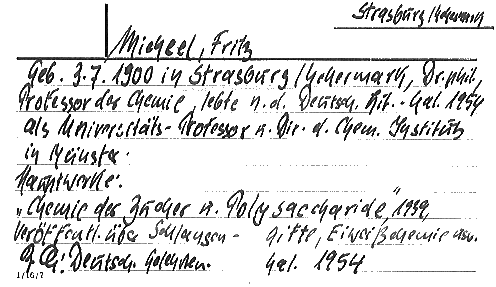 Strasburg/Uckermark
Micheel, Fritz
Geb. 3.7.1900 in Strasburg/Uckermark, Dr. phil,
Professor der Chemie, lebte n. d. Deutsch. Lit.-Kal. 1954
als Universitäts-Professor u. Dir. d. Chem. Instituts
in Münster.
Hauptwerke:
"Chemie der Zucker u. Polysaccharide", 1939,
Veröffentl. über Schlangen- gifte, Eiweißchemie usw.
Deutsch. Gelehrten. Kal. 1954